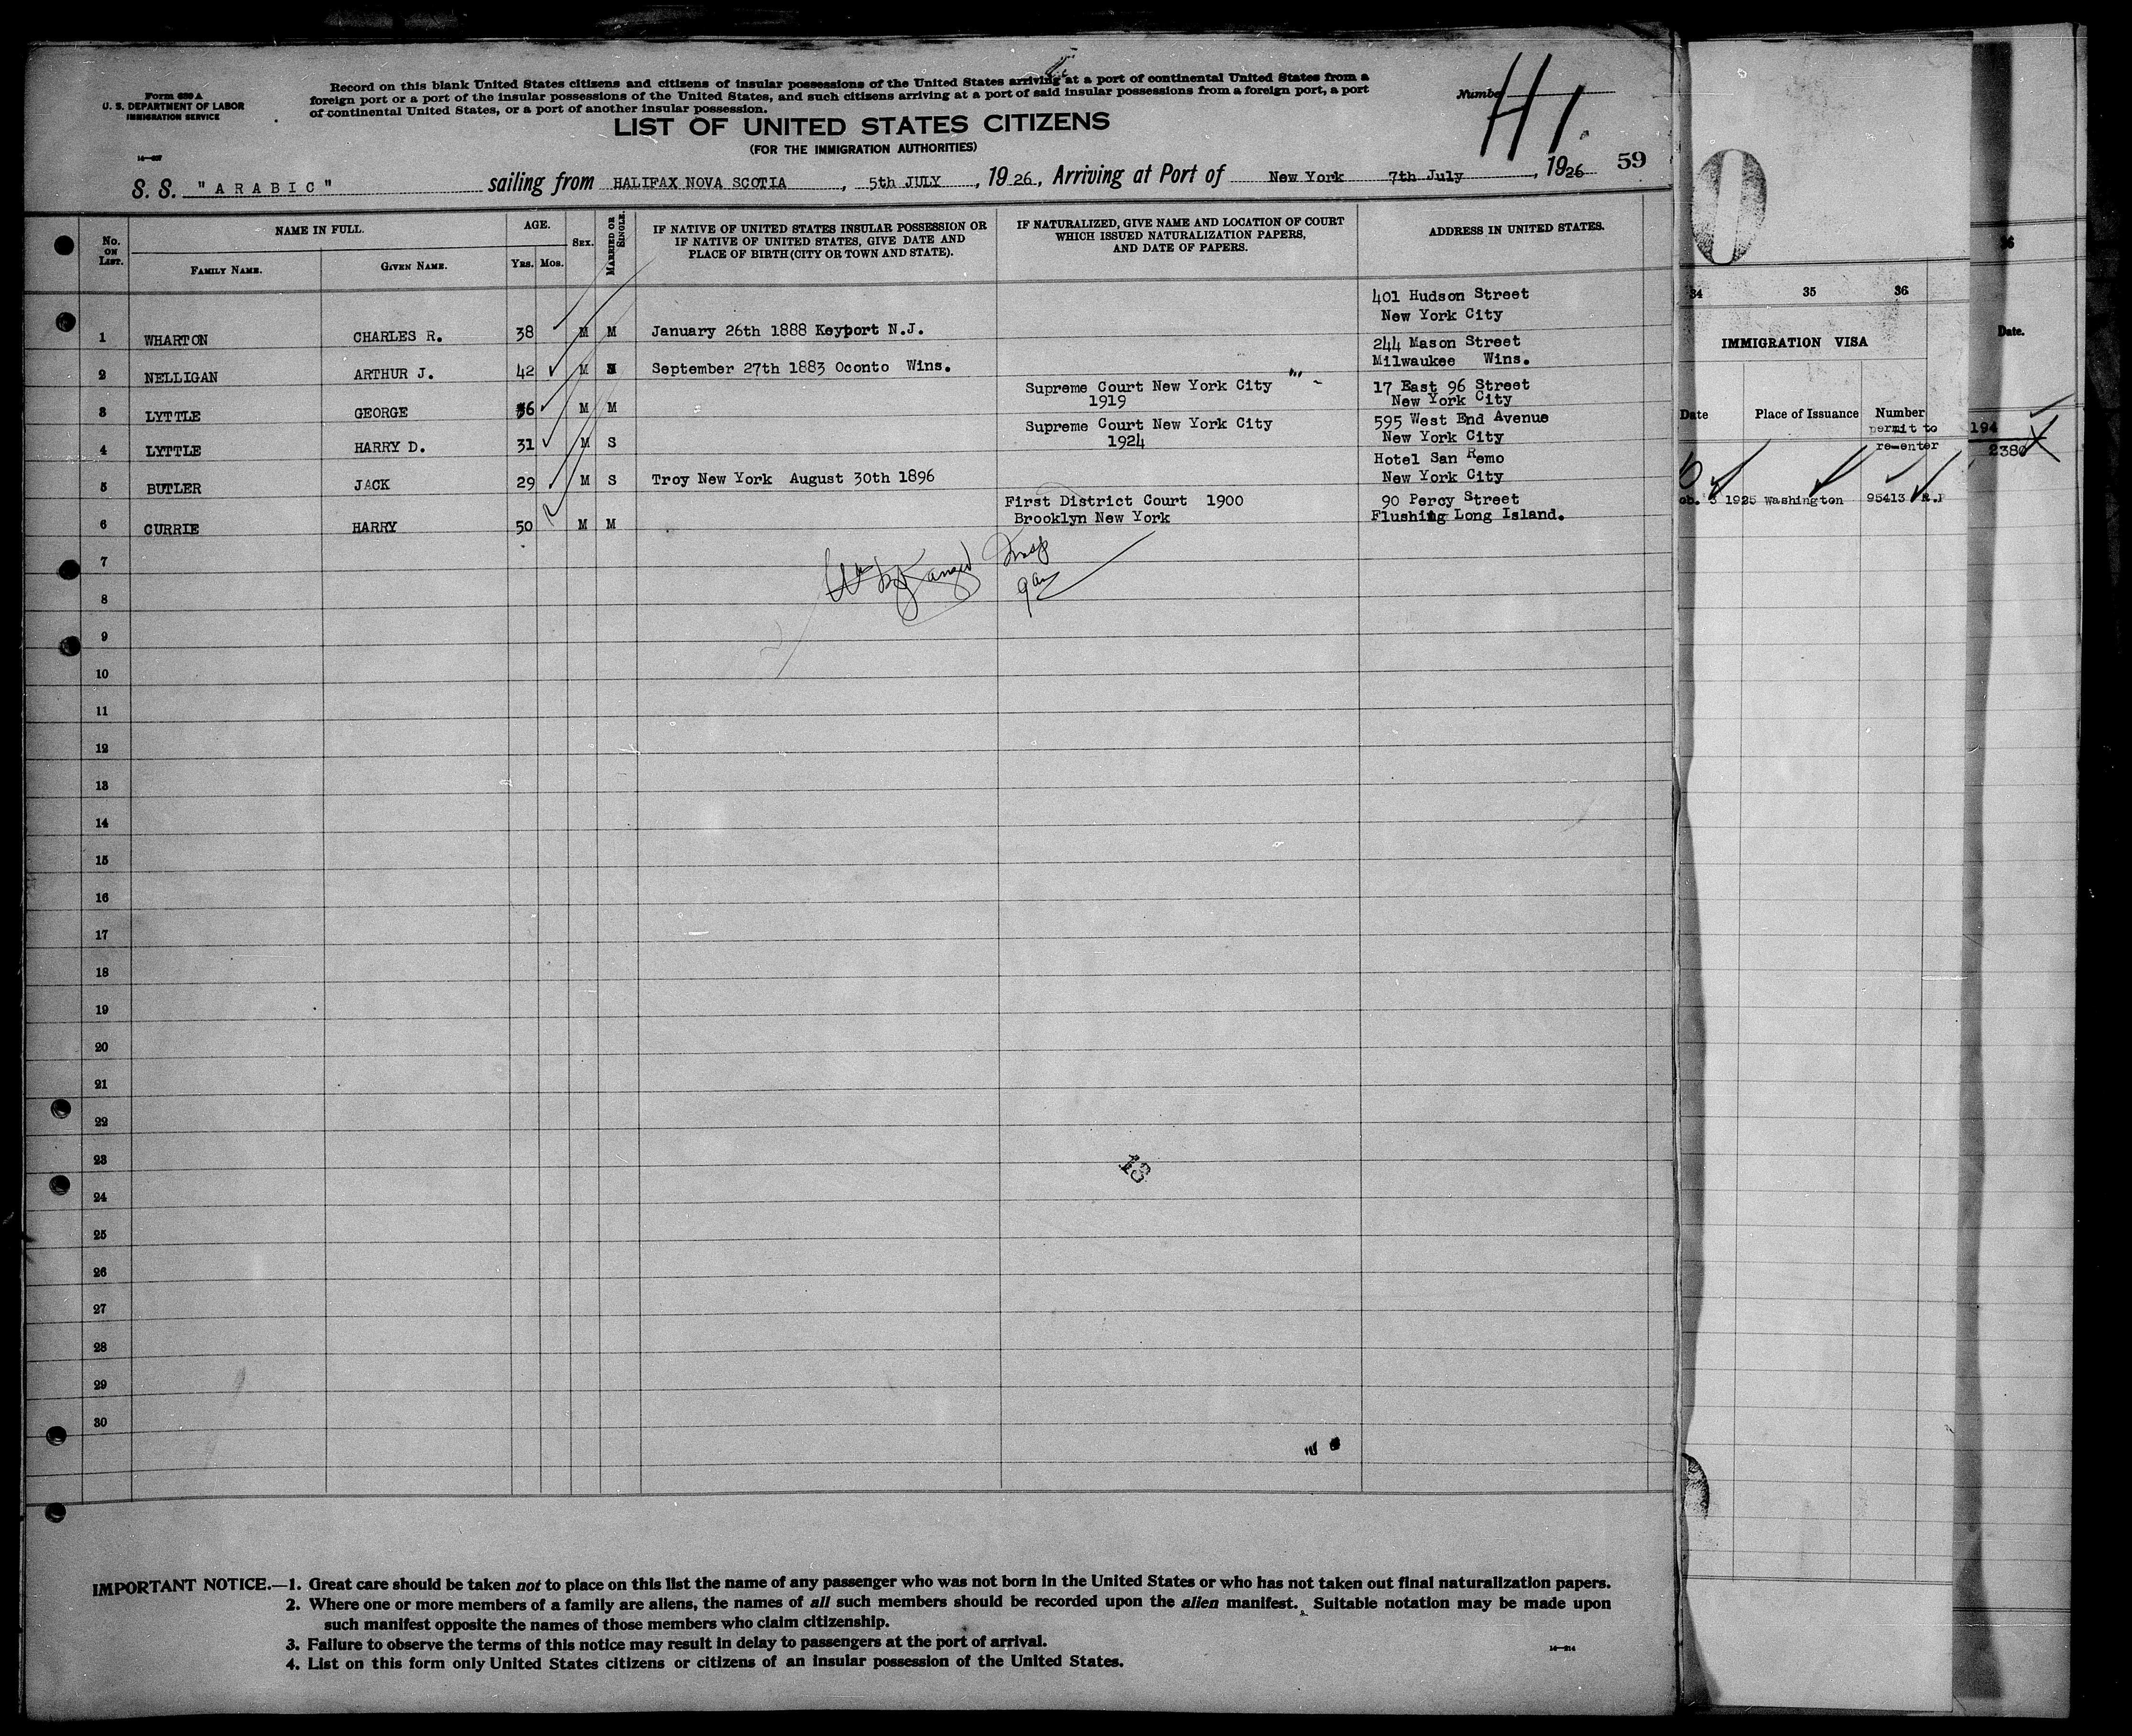 Form 630 A
U. S. DEPARTMENT OF LABOR
IMMIGRATION SERVICE
Record on this blank United States citizens and citizens of insular possessions of the United States arriving at a port of continental United States from a
foreign port or a port of the insular possessions of the United States, and such citizens arriving at a port of said insular possessions from a foreign port, a port
of continental United States, or a port of another insular possession.
Number H 1.
LIST OF UNITED STATES CITIZENS
(FOR THE IMMIGRATION AUTHORITIES)
59
S. S. "ARABIC" sailing from HALIFAX NOVA SCOTIA, 5th JULY, 1926, Arriving at Port of New York 7th July, 1926
No. ON LIST. NAME IN FULL. FAMILY NAME. GIVEN NAME. AGE. YRS. MOS. SEX. MARRIED OR SINGLE. IF NATIVE OF UNITED STATES INSULAR POSSESSION OR IF NATIVE OF UNITED STATES, GIVE DATE AND PLACE OF BIRTH (CITY OR TOWN AND STATE). IF NATURALIZED, GIVE NAME AND LOCATION OF COURT WHICH ISSUED NATURALIZATION PAPERS, AND DATE OF PAPERS. ADDRESS IN UNITED STATES.
1 WHARTON CHARLES R. 38 M M January 26th 1888 Keyport N.J. 401 Hudson Street New York City
2 NELLIGAN ARTHUR J. 42 M September 27th 1883 Oconto Wins. 244 Mason Street Milwaukee Wins.
3 LYTTLE GEORGE 36 M M Supreme Court New York City 1919 17 East 96 Street New York City
4 LYTTLE HARRY D. 31 M S Supreme Court New York City 1924 595 West End Avenue New York City
5 BUTLER JACK 29 M S Troy New York August 30th 1896 Hotel San Remo New York City
6 CURRIE HARRY 50 M M First District Court 1900 Brooklyn New York 90 Percy Street Flushing Long Island.
7
8
9
10
11
12
13
14
15
16
17
18
19
20
21
22
23
13
24
25
26
27
28
29
30
IMPORTANT NOTICE.—1. Great care should be taken not to place on this list the name of any passenger who was not born in the United States or who has not taken out final naturalization papers.
2. Where one or more members of a family are aliens, the names of all such members should be recorded upon the alien manifest. Suitable notation may be made upon
such manifest opposite the names of those members who claim citizenship.
3. Failure to observe the terms of this notice may result in delay to passengers at the port of arrival.
4. List on this form only United States citizens or citizens of an insular possession of the United States.
34 35 36
IMMIGRATION VISA
Date Place of Issuance Number
permit to
re-enter
3 1925 Washington 95413
Date.
194
2380